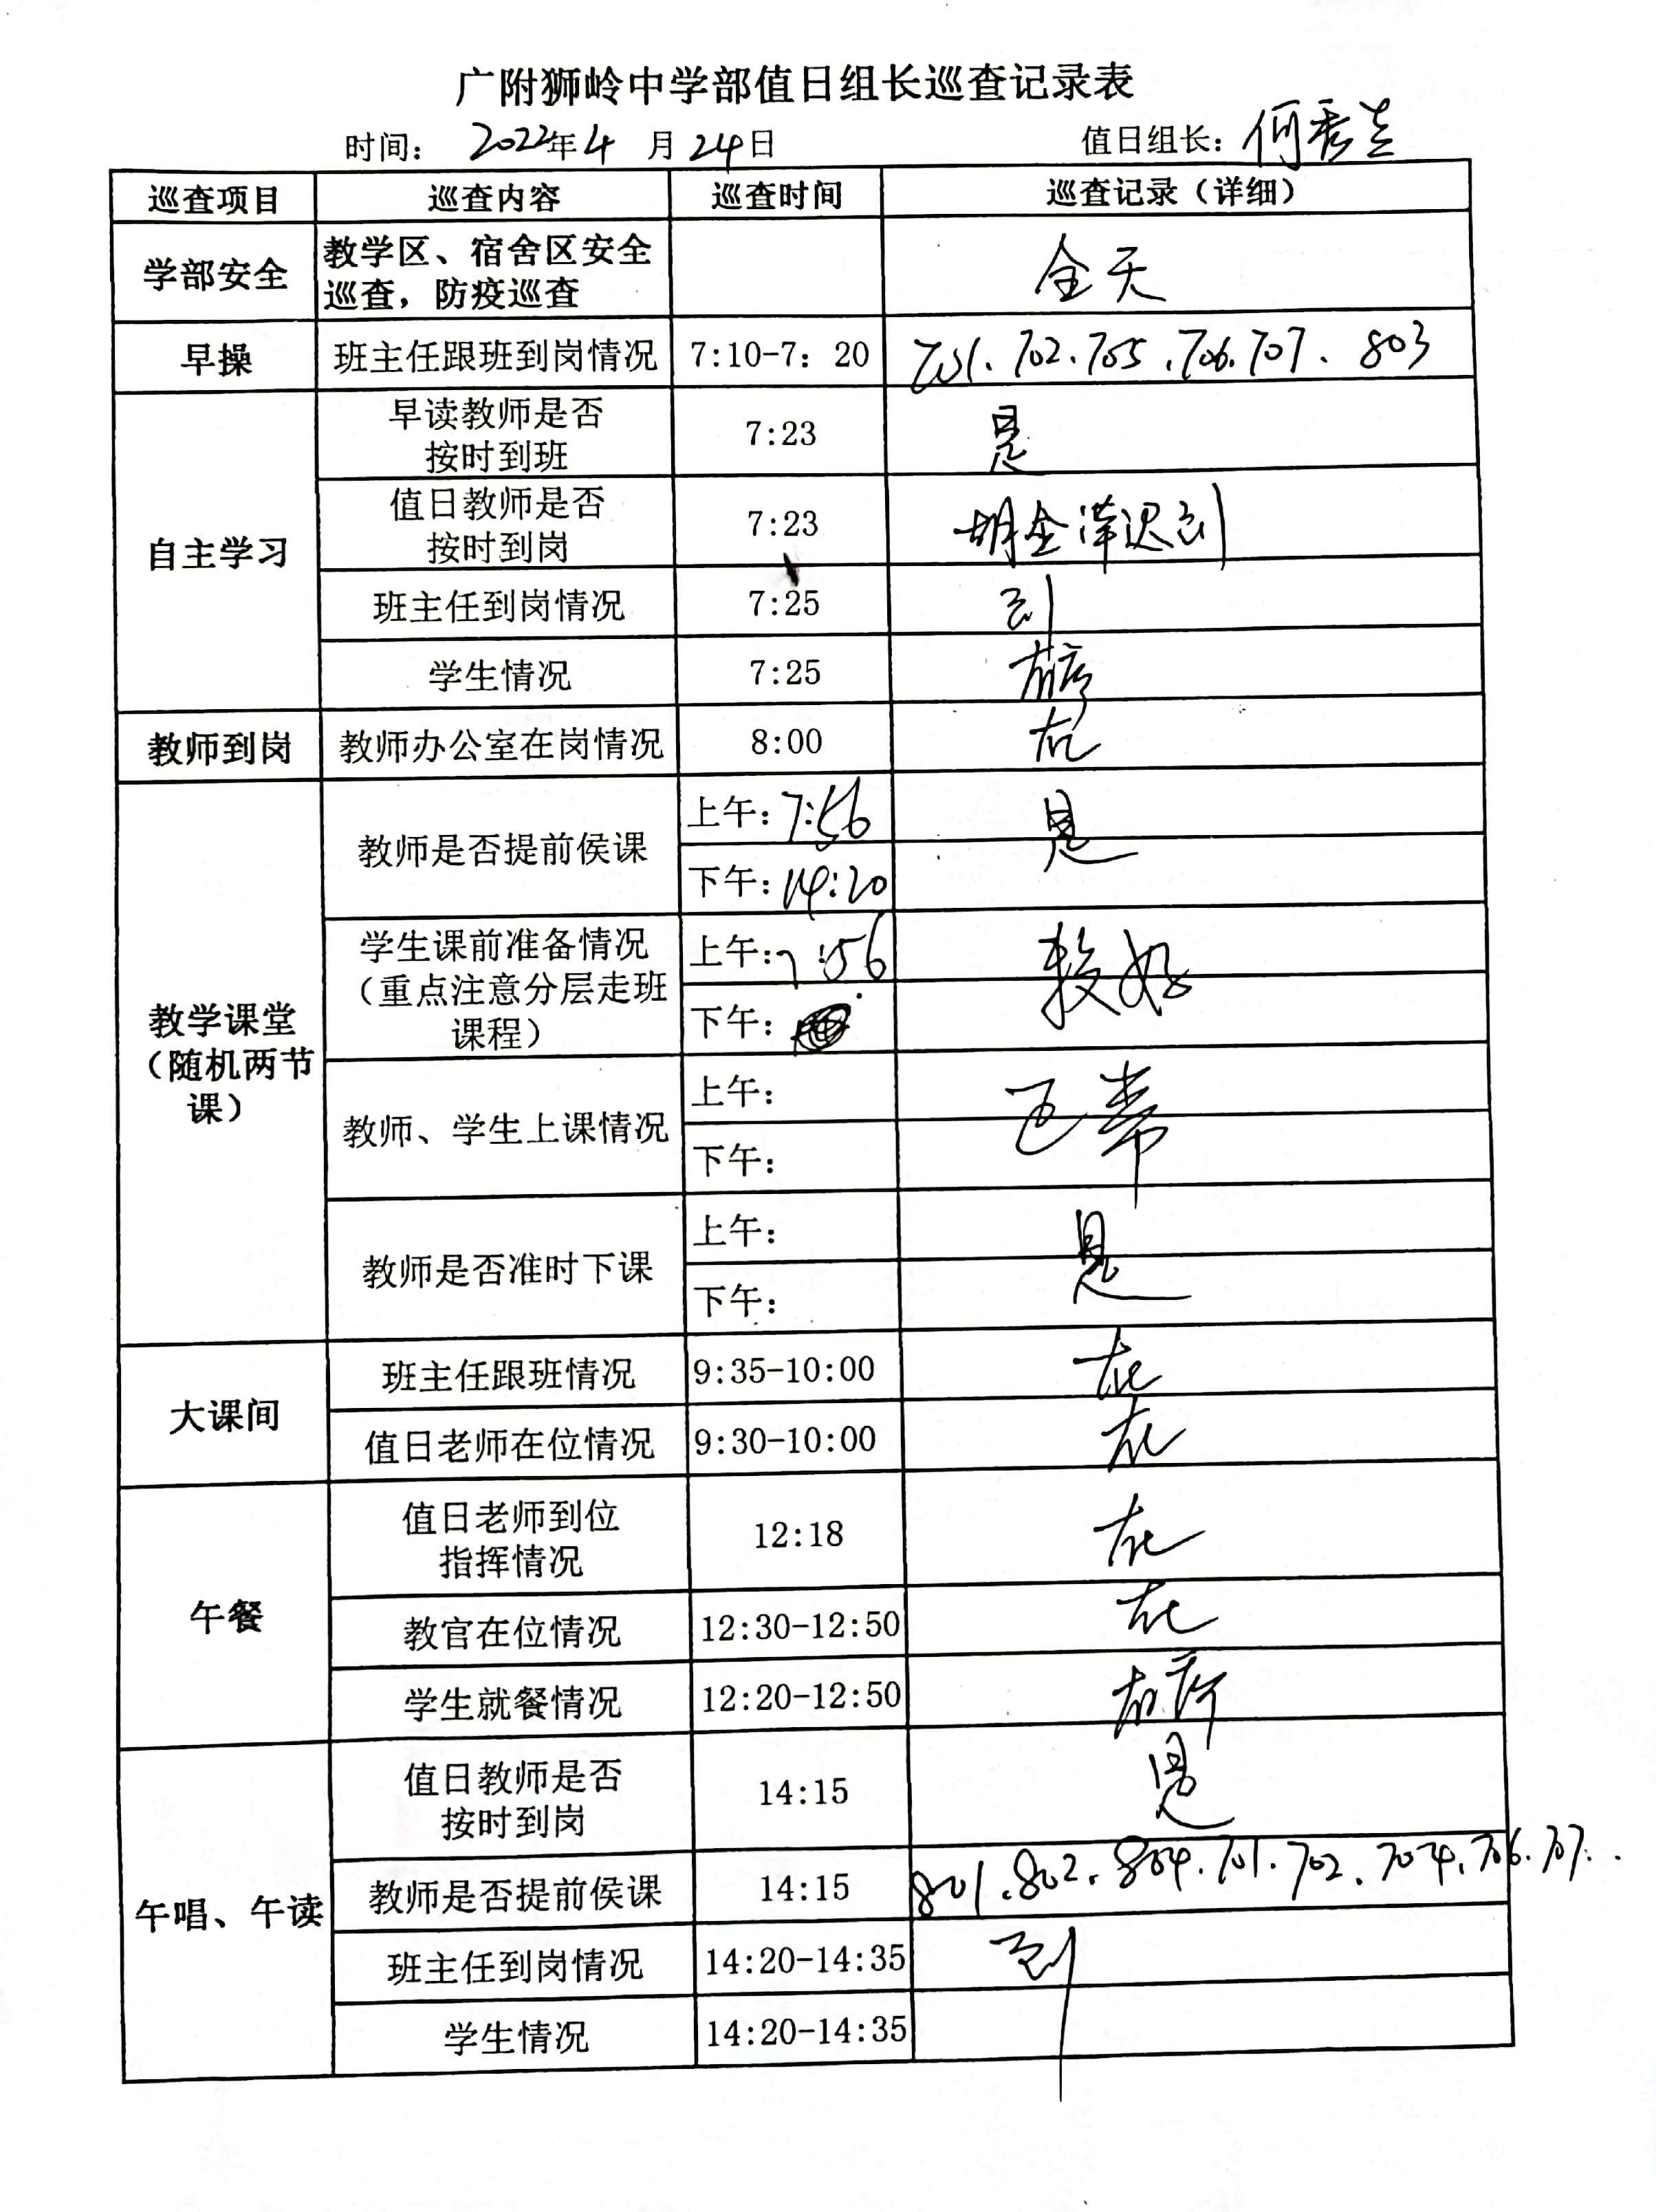 广附狮岭中学部值日组长巡查记录表
时间: 2022年4月24日 值日组长:何秀芝
巡查项目 巡查内容 巡查时间 巡查记录（详细）
学部安全 教学区、宿舍区安全
巡查，防疫巡查 全天
早操 班主任跟班到岗情况 7:10-7：20 701.702.705.706.707、803
自主学习
早读教师是否
按时到班 7:23 是
值日教师是否
按时到岗 7:23 迟到
班主任到岗情况 7:25 到
学生情况 7:25
教师到岗 教师办公室在岗情况 8:00 在
教学课堂
（随机两节
课）
教师是否提前侯课 上午：7:56 是
下午：14:20
学生课前准备情况
（重点注意分层走班
课程） 上午：7:56 较好
下午：
教师、学生上课情况 上午： 正常
下午：
教师是否准时下课 上午： 是
下午：
大课间
班主任跟班情况 9:35-10:00 在
值日老师在位情况 9:30-10:00 在
午餐
值日老师到位
指挥情况 12:18 在
教官在位情况 12:30-12:50 在
学生就餐情况 12:20-12:50 有序
午唱、午读
值日教师是否
按时到岗 14:15 是
教师是否提前侯课 14:15 801.802.804.701.702.704.706.707..
班主任到岗情况 14:20-14:35 到
学生情况 14:20-14:35